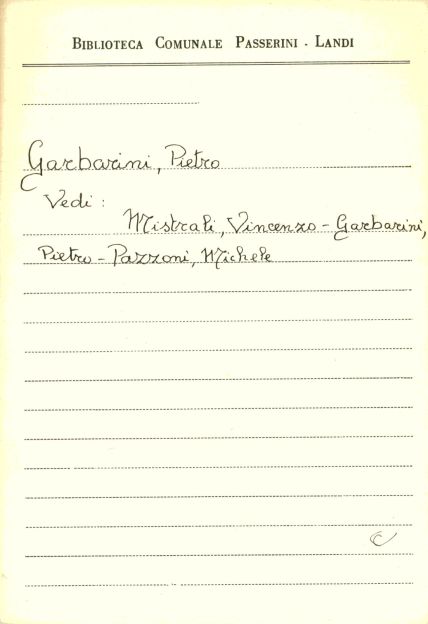 BIBLIOTECA COMUNALE PASSERINI - LANDI
Garbarini, Pietro
Vedi :
Mistrali, Vincenzo - Garbarini,
Pietro - Pazzoni, Michele
C